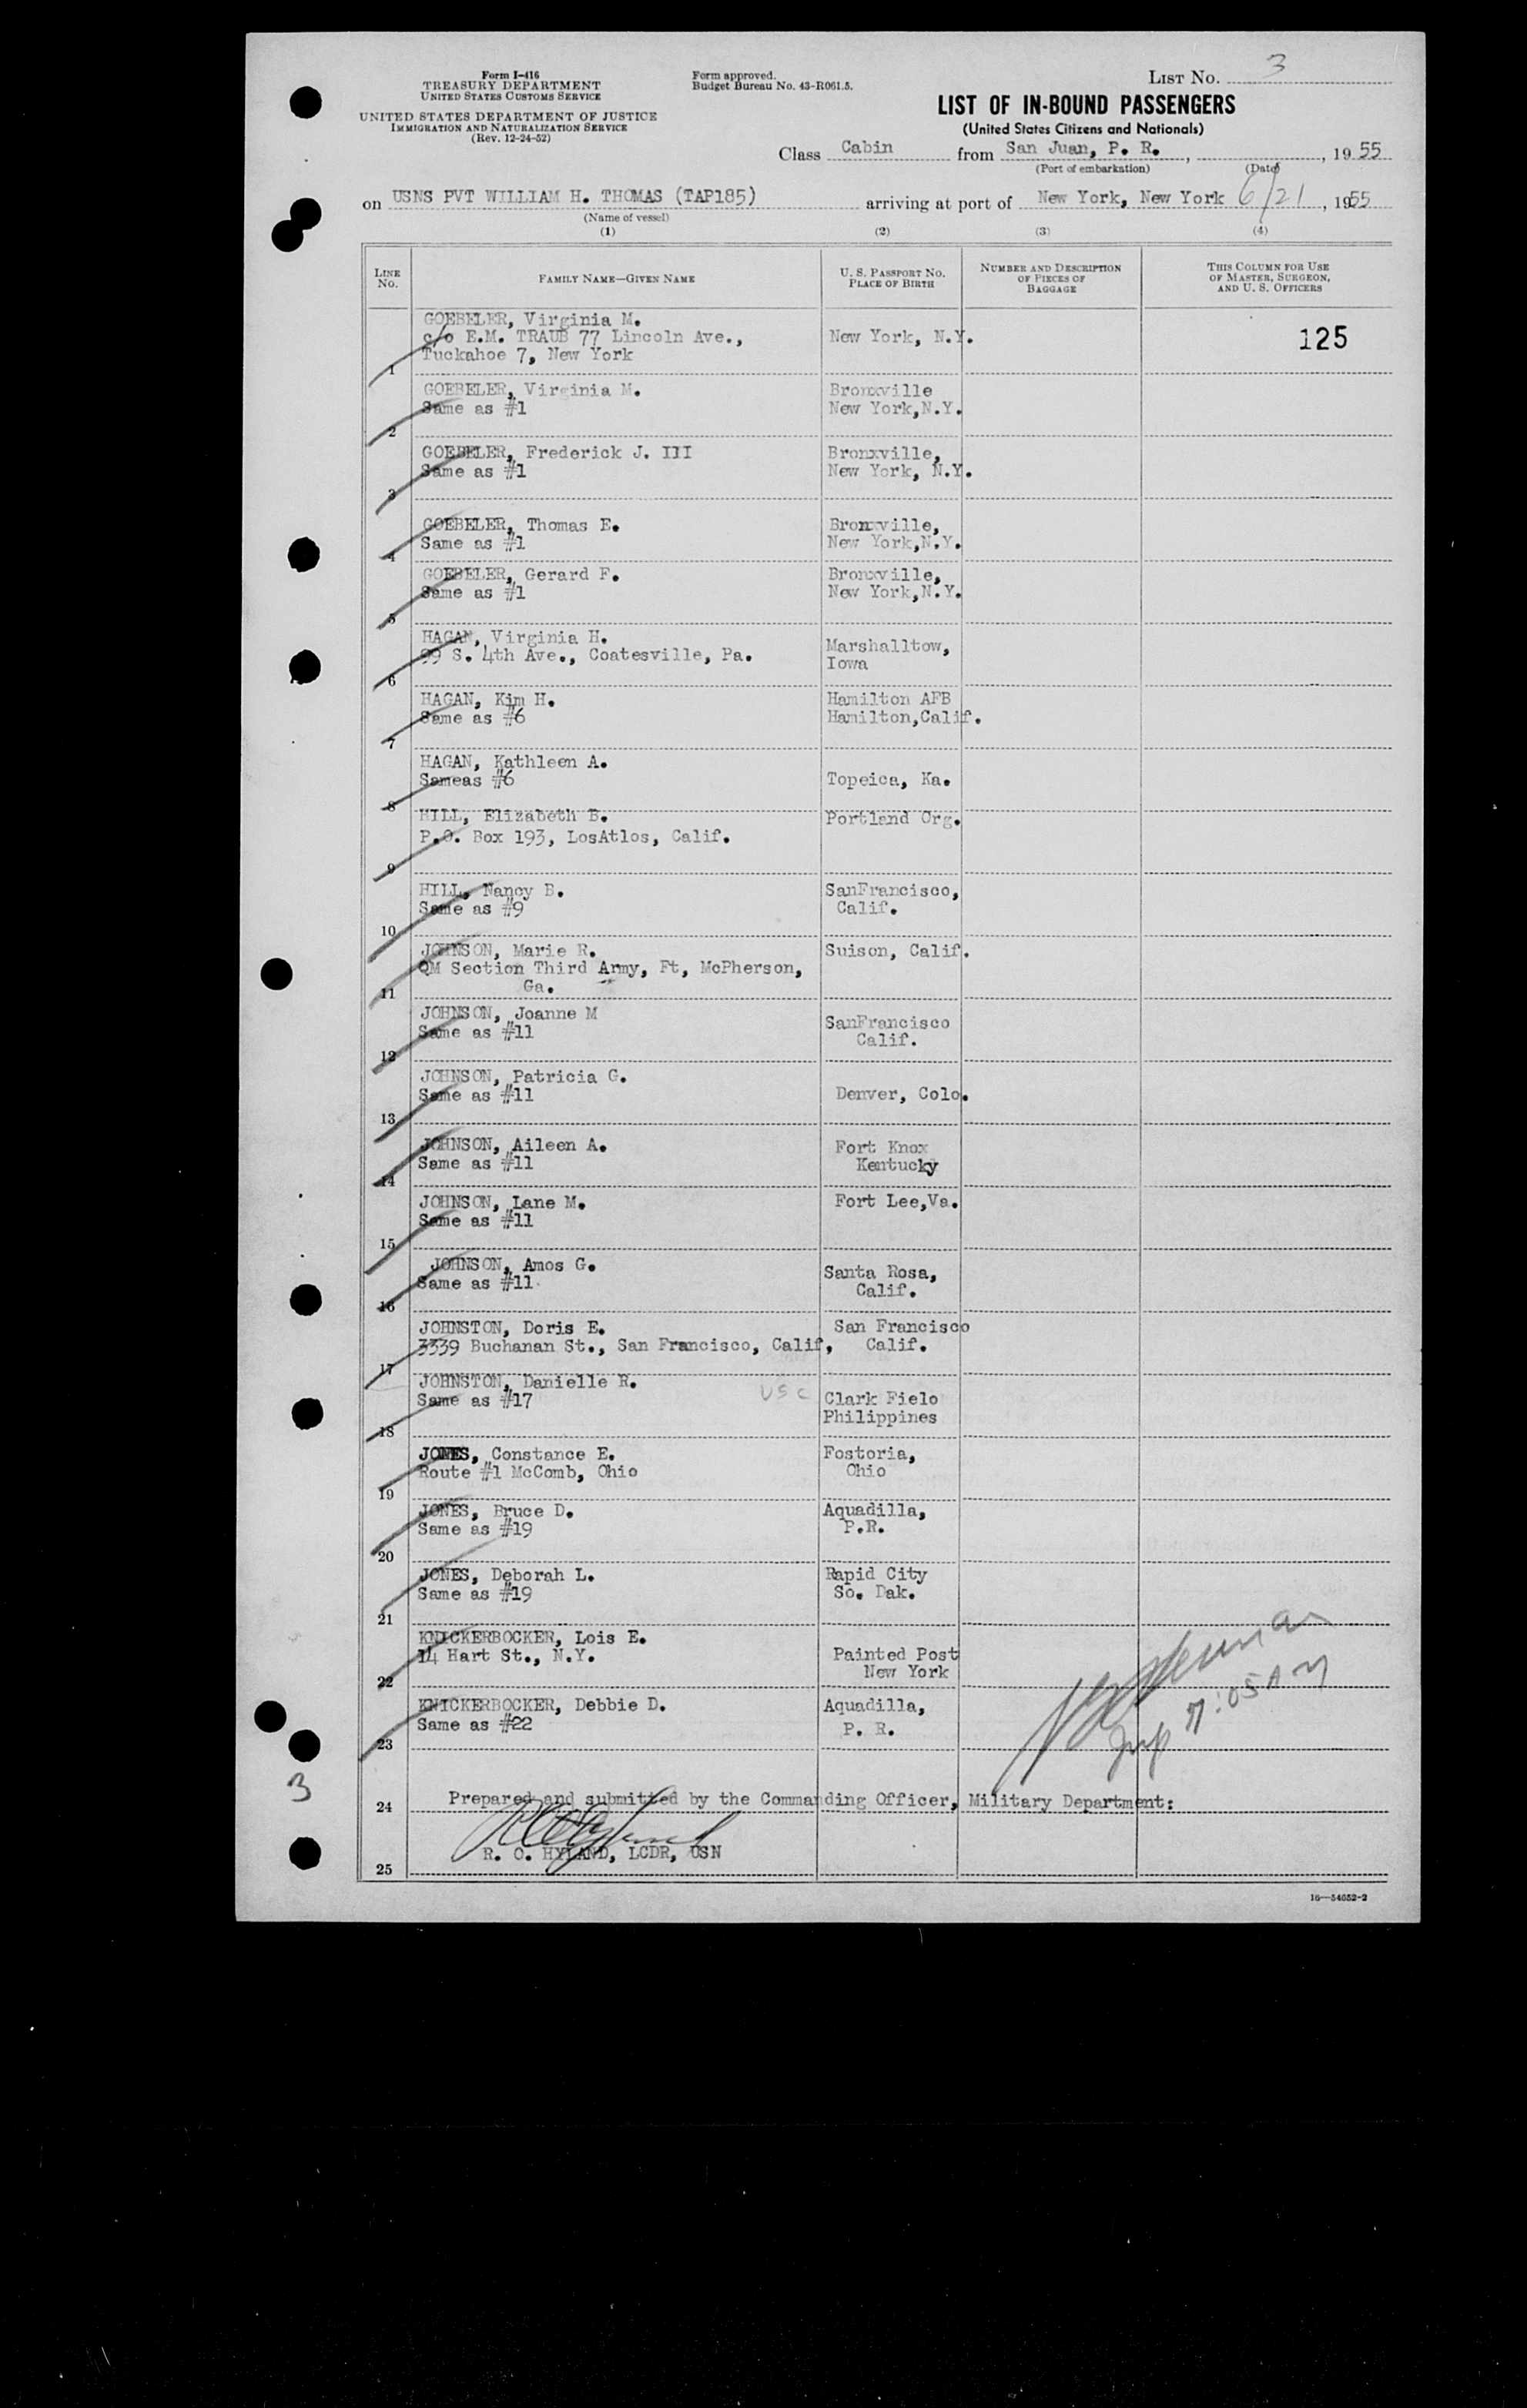 Form I-416
TREASURY DEPARTMENT
UNITED STATES CUSTOMS SERVICE
UNITED STATES DEPARTMENT OF JUSTICE
IMMIGRATION AND NATURALIZATION SERVICE
(Rev. 12-24-52)
Form approved.
Budget Bureau No. 43-R061.5.
LIST NO. 3
LIST OF IN-BOUND PASSENGERS
(United States Citizens and Nationals)
Class Cabin from San Juan, P. R., , 1955
(Port of embarkation) (Date)
on USNS PVT WILLIAM H. THOMAS (TAP185) arriving at port of New York, New York 6/21, 1955
(Name of vessel)
(1) (2) (3) (4)
LINE NO.
FAMILY NAME—GIVEN NAME
U. S. PASSPORT NO.
PLACE OF BIRTH
NUMBER AND DESCRIPTION
OF PIECES OF
BAGGAGE
THIS COLUMN FOR USE
OF MASTER, SURGEON,
AND U. S. OFFICERS
GOEBELER, Virginia M.
c/o E.M. TRAUB 77 Lincoln Ave., New York, N.Y. 125
Tuckahoe 7, New York
1
GOEBELER, Virginia M. Bronxville
Same as #1 New York,N.Y.
2
GOEBELER, Frederick J. III Bronxville,
Same as #1 New York, N.Y.
3
GOEBELER, Thomas E. Bronxville,
Same as #1 New York,N.Y.
4
GOEBELER, Gerard F. Bronxville,
Same as #1 New York,N.Y.
5
HAGAN, Virginia H. Marshalltow,
99 S. 4th Ave., Coatesville, Pa. Iowa
6
HAGAN, Kim H. Hamilton AFB
Same as #6 Hamilton,Calif.
7
HAGAN, Kathleen A.
Sameas #6 Topeica, Ka.
8
HILL, Elizabeth B. Portland Org.
P.O. Box 193, LosAtlos, Calif.
9
HILL, Nancy B. SanFrancisco,
Same as #9 Calif.
10
JOHNSON, Marie R. Suison, Calif.
QM Section Third Army, Ft, McPherson,
Ga.
11
JOHNSON, Joanne M SanFrancisco
Same as #11 Calif.
12
JOHNSON, Patricia G.
Same as #11 Denver, Colo.
13
JOHNSON, Aileen A. Fort Knox
Same as #11 Kentucky
14
JOHNSON, Lane M. Fort Lee,Va.
Same as #11
15
JOHNSON, Amos G. Santa Rosa,
Same as #11 Calif.
16
JOHNSTON, Doris E. San Francisco
3339 Buchanan St., San Francisco, Calif, Calif.
17
JOHNSTON, Danielle R. USC
Same as #17 Clark Fielo
Philippines
18
JONES, Constance E. Fostoria,
Route #1 McComb, Ohio Ohio
19
JONES, Bruce D. Aquadilla,
Same as #19 P.R.
20
JONES, Deborah L. Rapid City
Same as #19 So. Dak.
21
KNICKERBOCKER, Lois E.
14 Hart St., N.Y. Painted Post
New York
22
KNICKERBOCKER, Debbie D. Aquadilla,
Same as #22 P. R.
7:05 AM
23
3
Prepared and submitted by the Commanding Officer, Military Department:
24
R. C. HYLAND, LCDR, USN
25
16—54652-2